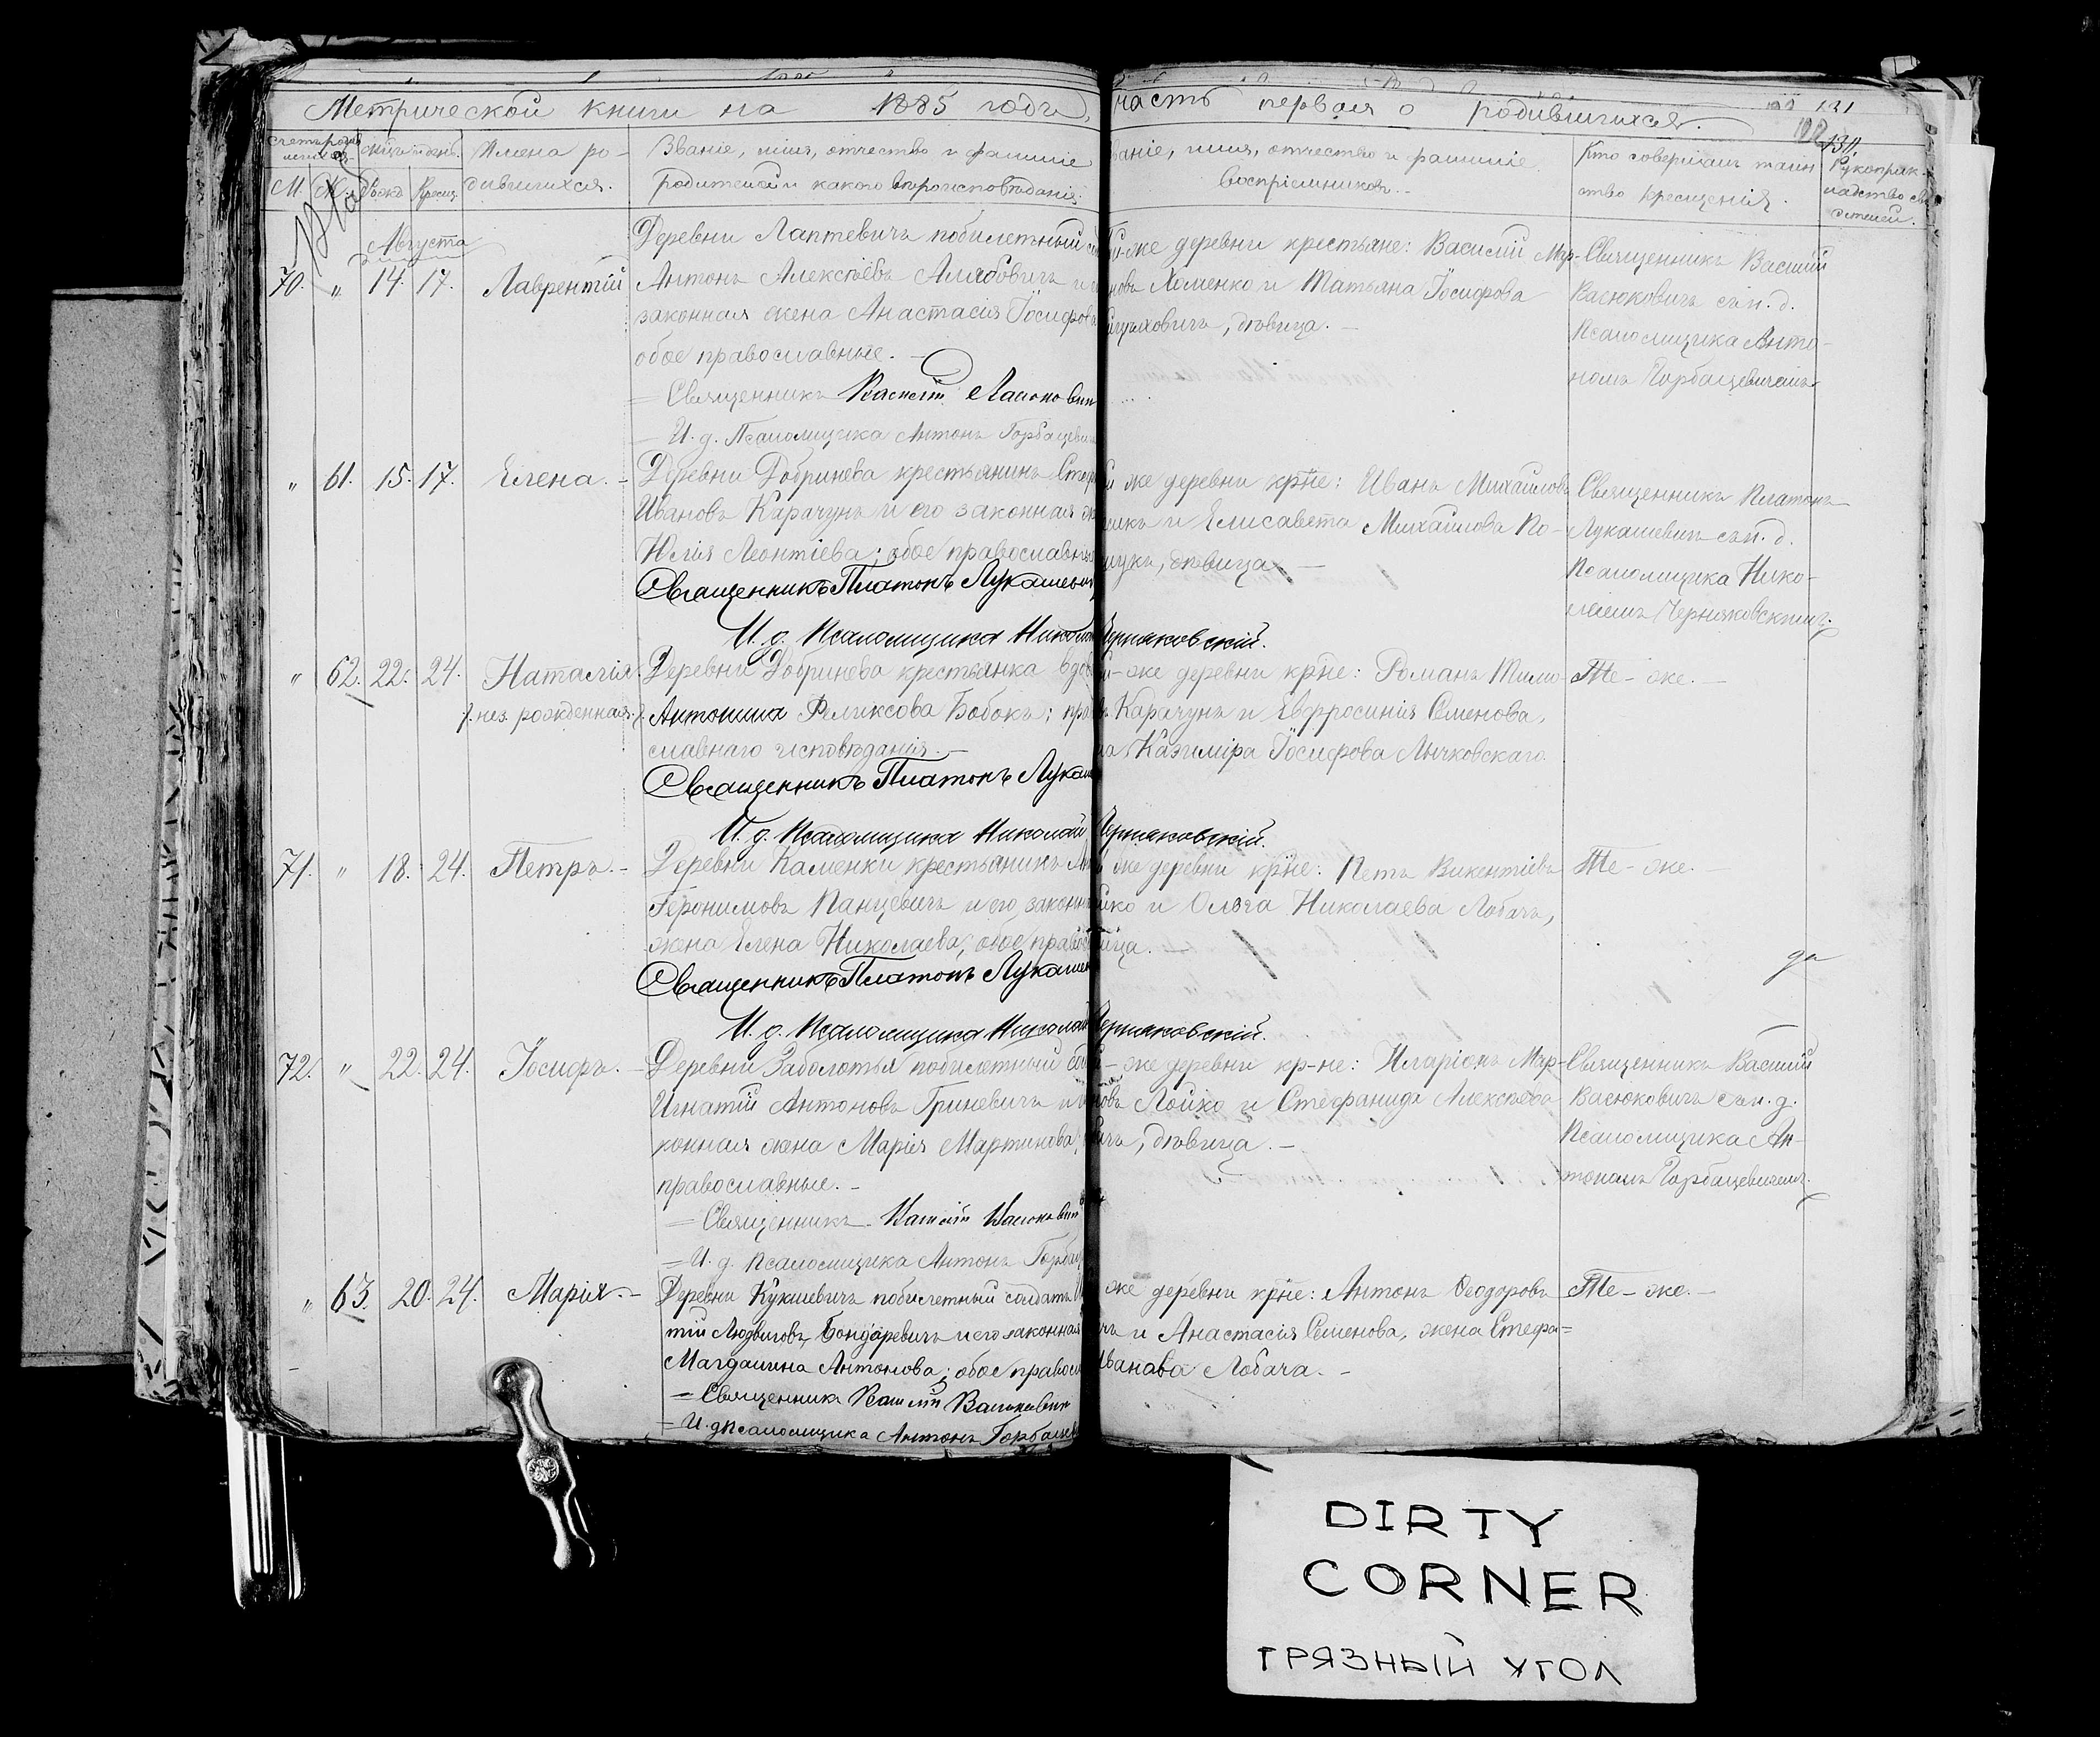 Метрической книги на 1885 годъ, часть первая о родившихся.
131
130
Счетъ родив
шихся
М. Ж.
Рожд. Крещ.
Имена ро-
дившихся.
Званіе, имя, отчество и фамиліе
родителей и какого вѣроисповѣданія.
Званіе, имя, отчество и фамиліе
воспріемниковъ.
Кто совершалъ таин
ство крещенія.
Рукоприк-
ладство сви
детелей.
Августа
70. " 14. 17. Лаврентій
Деревни Лаптевичъ побилетный
Антонъ Алексѣевъ Алябовичъ и
законная жена Анастасія Іосифов
обое православные.
Священникъ Василій
И. д. Псаломщика Антонъ Горбацевич
же деревни крестьяне: Василій Мар-
новъ Хоменко и Татьяна Іосифова
дѣвица.
Священникъ Василій
Васюковичъ съ и. д.
Псаломщика Анто-
номъ Горбацевичемъ
" 61. 15. 17. Елена.
Деревни Добринева крестьянинъ
Ивановъ Карачунъ и его законная
Юлія Леонтіева; обое православны
Священникъ Платонъ Лукашевич
И. д. Псаломщика Никола Черняковскій.
же деревни кр-не: Иванъ Михайловъ
и Елисавета Михайлова По-
щукъ, дѣвица
Священникъ Платонъ
Лукашевичъ съ и. д.
Псаломщика Нико-
лаемъ Черняковскимъ.
" 62. 22. 24. Наталія
нез. рожденная.
Деревни Добринева крестьянка вдов
Антонина Феликсова Бобокъ; пра
славнаго исповѣданія.
Священникъ Платонъ Лукаш
И. д. Псаломщика Николай Черняковскій.
же деревни кр-не: Романъ
Карачунъ и Евфросинія Семенова,
Казиміра Іосифова Лычковскаго.
Тѣ-же.
71. " 18. 24. Петръ.
Деревни Каменки крестьянинъ
Іеронимовъ Панцевичъ и его законн
жена Елена Николаева; обое правос
Священникъ Платонъ Лукашев
И. д. Псаломщика Николай Черняковскій.
же деревни кр-не: Петъ Викентіевъ
и Ольга Николаева Лобачъ,
вица.
Тѣ-же.
да
72. " 22. 24. Іосифъ.
Деревни Заболотья побилетный
Игнатій Антоновъ Гриневичъ и
конная жена Марія Мартинова,
православные.
Священникъ Василій
И. д. Псаломщика Антонъ Горбац
же деревни кр-не: Иларіонъ Мар-
новъ Лойко и Стефанида Алексѣева
вичъ, дѣвица.
Священникъ Василій
Васюковичъ съ и. д.
Псаломщика Ан-
тономъ Горбацевичемъ.
" 63. 20. 24. Марія.
Деревни Кукшевичъ побилетный солдатъ
тій Людвиговъ Бондаревичъ и его законная
Магдалина Антонова; обое правосл
Священникъ Василій Васюкович
И. д. Псаломщика Антонъ Горбацев
же деревни кр-не: Антонъ Ѳеодоровъ
и Анастасія Семенова, жена Стефа-
Иванова Лобача.
Тѣ-же.
DIRTY
CORNER
ГРЯЗНЫЙ УГОЛ